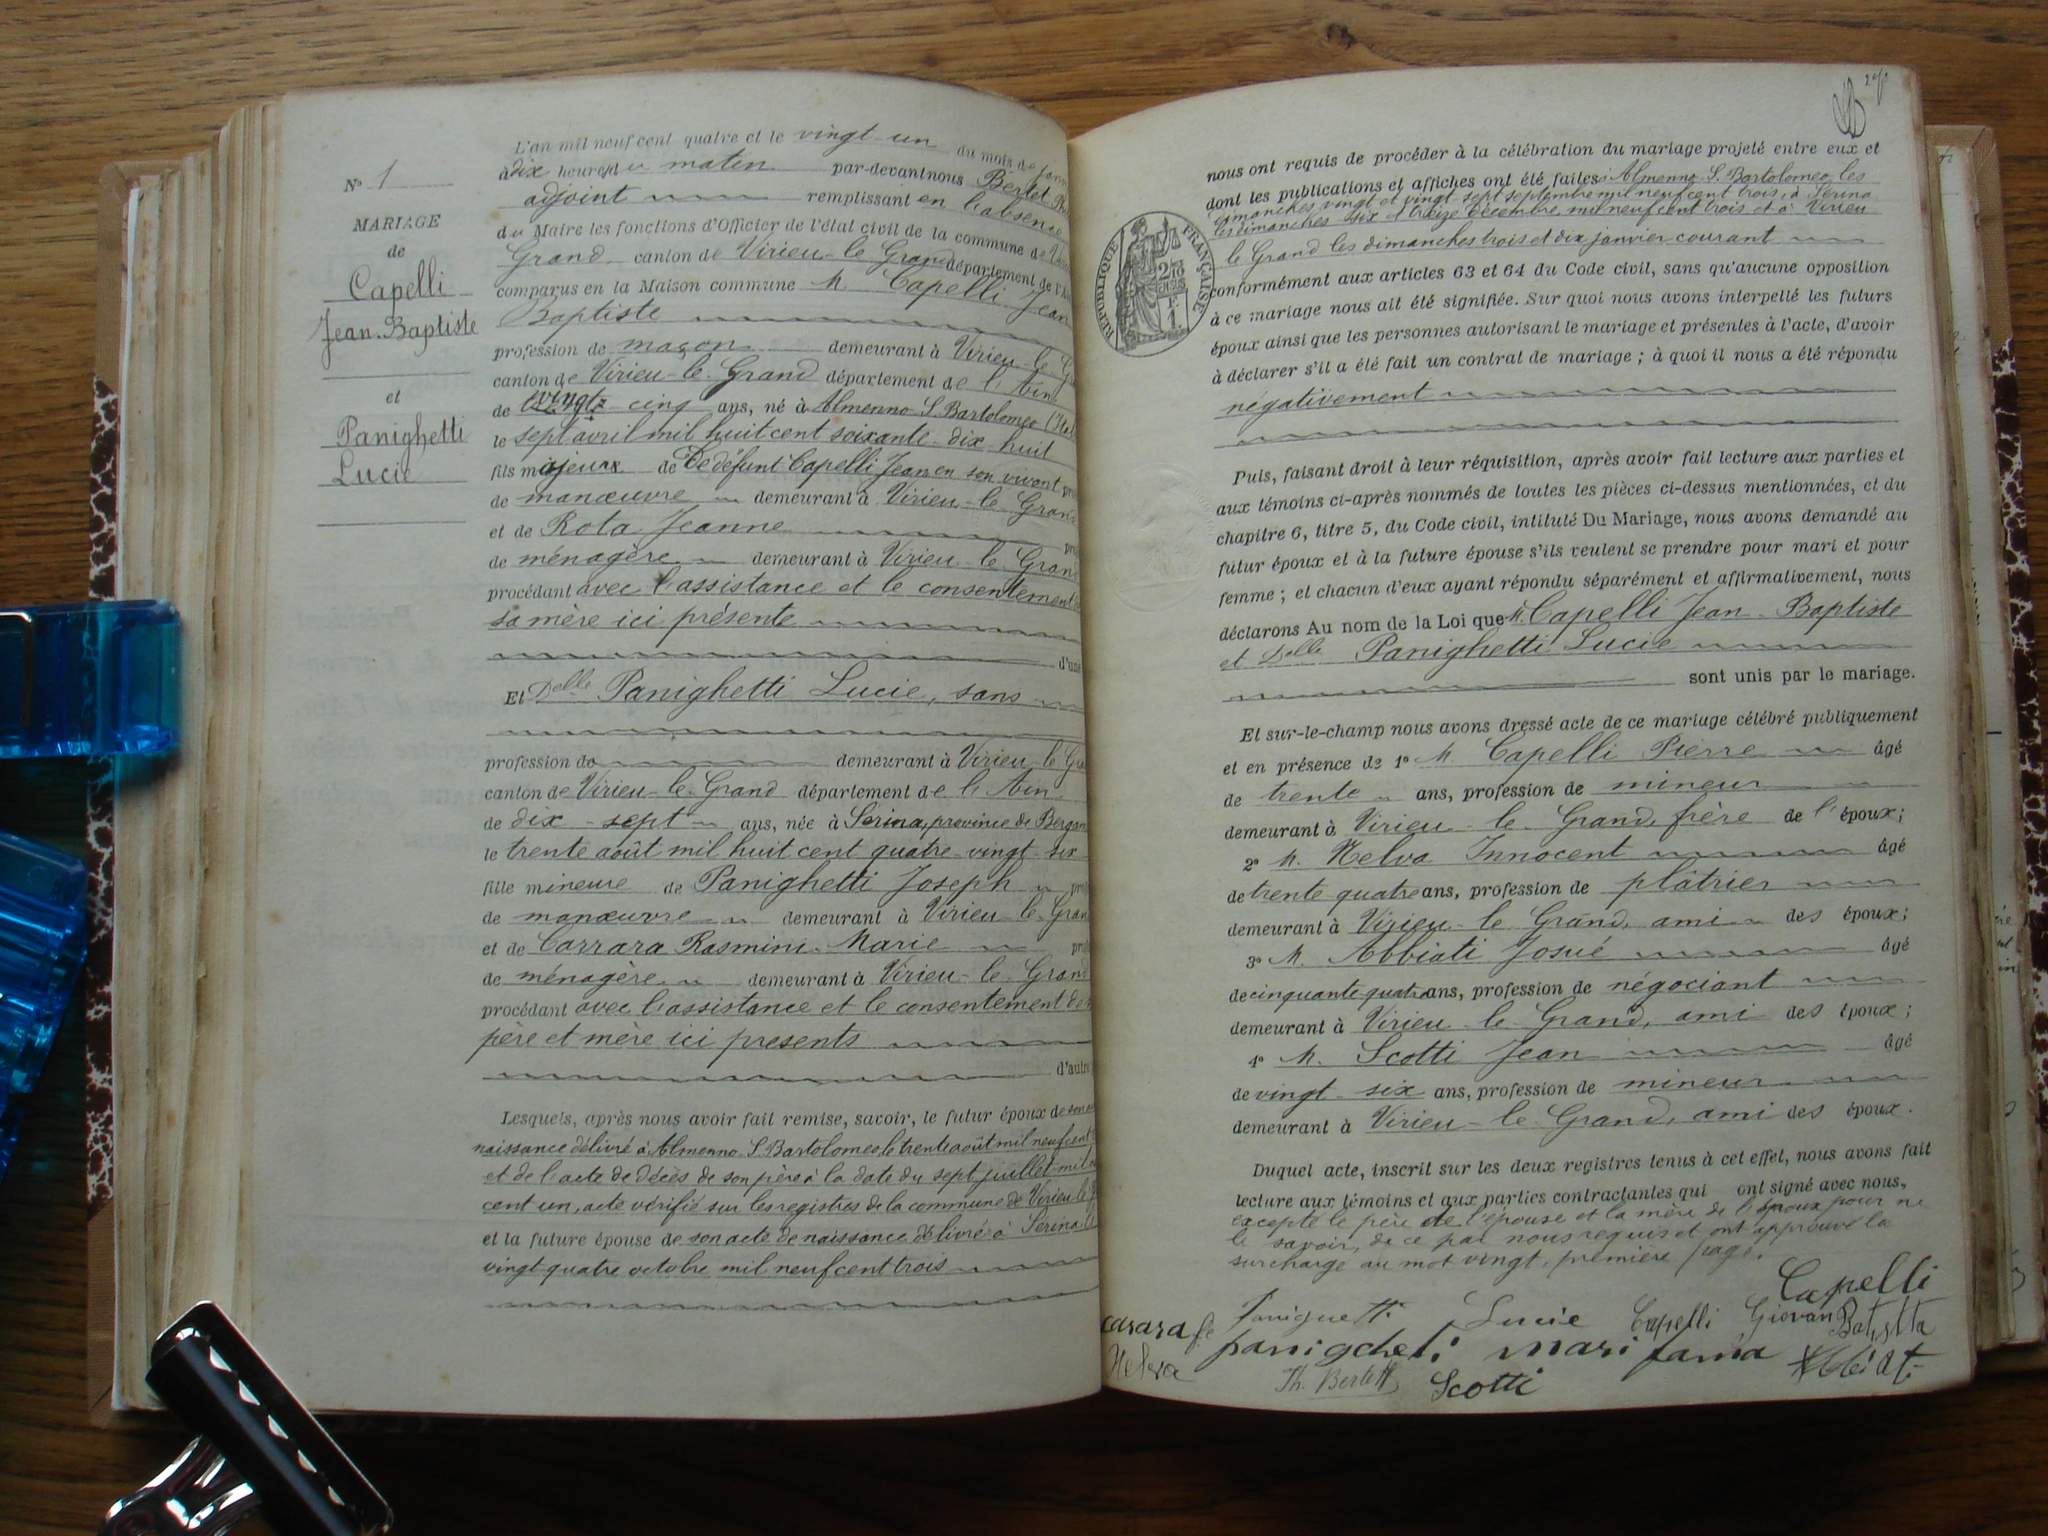 N° 1
MARIAGE
de
Capelli
Jean-Baptiste
et
Panighetti
Lucie
L'an mil neuf cent quatre et le vingt-un du mois de
à dix heures du matin par-devant nous Bertet
adjoint remplissant en l'absence
du Maire les fonctions d'Officier de l'état civil de la commune de
Grand canton de Virieu-le-Grand département de l'
comparus en la Maison commune M Capelli Jean
Baptiste
profession de maçon demeurant à Virieu-le-
canton de Virieu-le-Grand département de l'Ain
de vingt cinq ans, né à Almenno S. Bartolomeo
le sept avril mil huit cent soixante-dix huit
fils majeur de De défunt Capelli Jean en son vivant
de manœuvre demeurant à Virieu-le-Grand
et de Rota Jeanne
de ménagère demeurant à Virieu-le-Grand
procédant avec l'assistance et le consentement
sa mère ici présente
d'une
Et Delle Panighetti Lucie, sans
profession de demeurant à Virieu-le-
canton de Virieu-le-Grand département de l'Ain
de dix-sept ans, née à Serina, province de
le trente août mil huit cent quatre-vingt-six
fille mineure de Panighetti Joseph
de manœuvre demeurant à Virieu-le-
et de Carrara Rasmini Marie
de ménagère demeurant à Virieu-le-Grand
procédant avec l'assistance et le consentement de
père et mère ici présents
d'autre
Lesquels, après nous avoir fait remise, savoir, le futur époux de son
naissance délivré à Almenno S. Bartolomeo le trente août mil neuf cent
et de l'acte de décès de son père à la date du sept juillet mil
cent un, acte vérifié sur les registres de la commune de Virieu-le-
et la future épouse de son acte de naissance délivré à Serina
vingt-quatre octobre mil neuf cent trois
nous ont requis de procéder à la célébration du mariage projeté entre eux et
dont les publications et affiches ont été faites à Almenno S. Bartolomeo les
dimanches vingt et vingt sept septembre mil neuf cent trois, à Serina
les dimanches six et treize Décembre mil neuf cent trois et à Virieu
le Grand les dimanches trois et dix janvier courant
conformément aux articles 63 et 64 du Code civil, sans qu'aucune opposition
à ce mariage nous ait été signifiée. Sur quoi nous avons interpellé les futurs
époux ainsi que les personnes autorisant le mariage et présentes à l'acte, d'avoir
à déclarer s'il a été fait un contrat de mariage ; à quoi il nous a été répondu
négativement
RÉPUBLIQUE FRANÇAISE
Puis, faisant droit à leur réquisition, après avoir fait lecture aux parties et
aux témoins ci-après nommés de toutes les pièces ci-dessus mentionnées, et du
chapitre 6, titre 5, du Code civil, intitulé Du Mariage, nous avons demandé au
futur époux et à la future épouse s'ils veulent se prendre pour mari et pour
femme ; et chacun d'eux ayant répondu séparément et affirmativement, nous
déclarons Au nom de la Loi que M. Capelli Jean-Baptiste
et Delle Panighetti Lucie
sont unis par le mariage.
Et sur-le-champ nous avons dressé acte de ce mariage célébré publiquement
et en présence de 1° M. Capelli Pierre âgé
de trente ans, profession de mineur
demeurant à Virieu-le-Grand, frère de l'époux;
2° M. Helva Innocent âgé
de trente quatre ans, profession de plâtrier
demeurant à Virieu-le-Grand, ami des époux;
3° M. Abbiati Josué âgé
de cinquante quatre ans, profession de négociant
demeurant à Virieu-le-Grand, ami des époux;
4° M. Scotti Jean âgé
de vingt-six ans, profession de mineur
demeurant à Virieu-le-Grand, ami des époux.
Duquel acte, inscrit sur les deux registres tenus à cet effet, nous avons fait
lecture aux témoins et aux parties contractantes qui ont signé avec nous,
excepté le père de l'épouse et la mère de l'époux pour ne
le savoir, de ce par nous requis et ont approuvé la
surcharge au mot vingt, première page.
Capelli
Paniguetti Lucie Capelli Giovan Batistta
carara
panigcheti mari
Helva Th. Bertet Scotti Abbiati